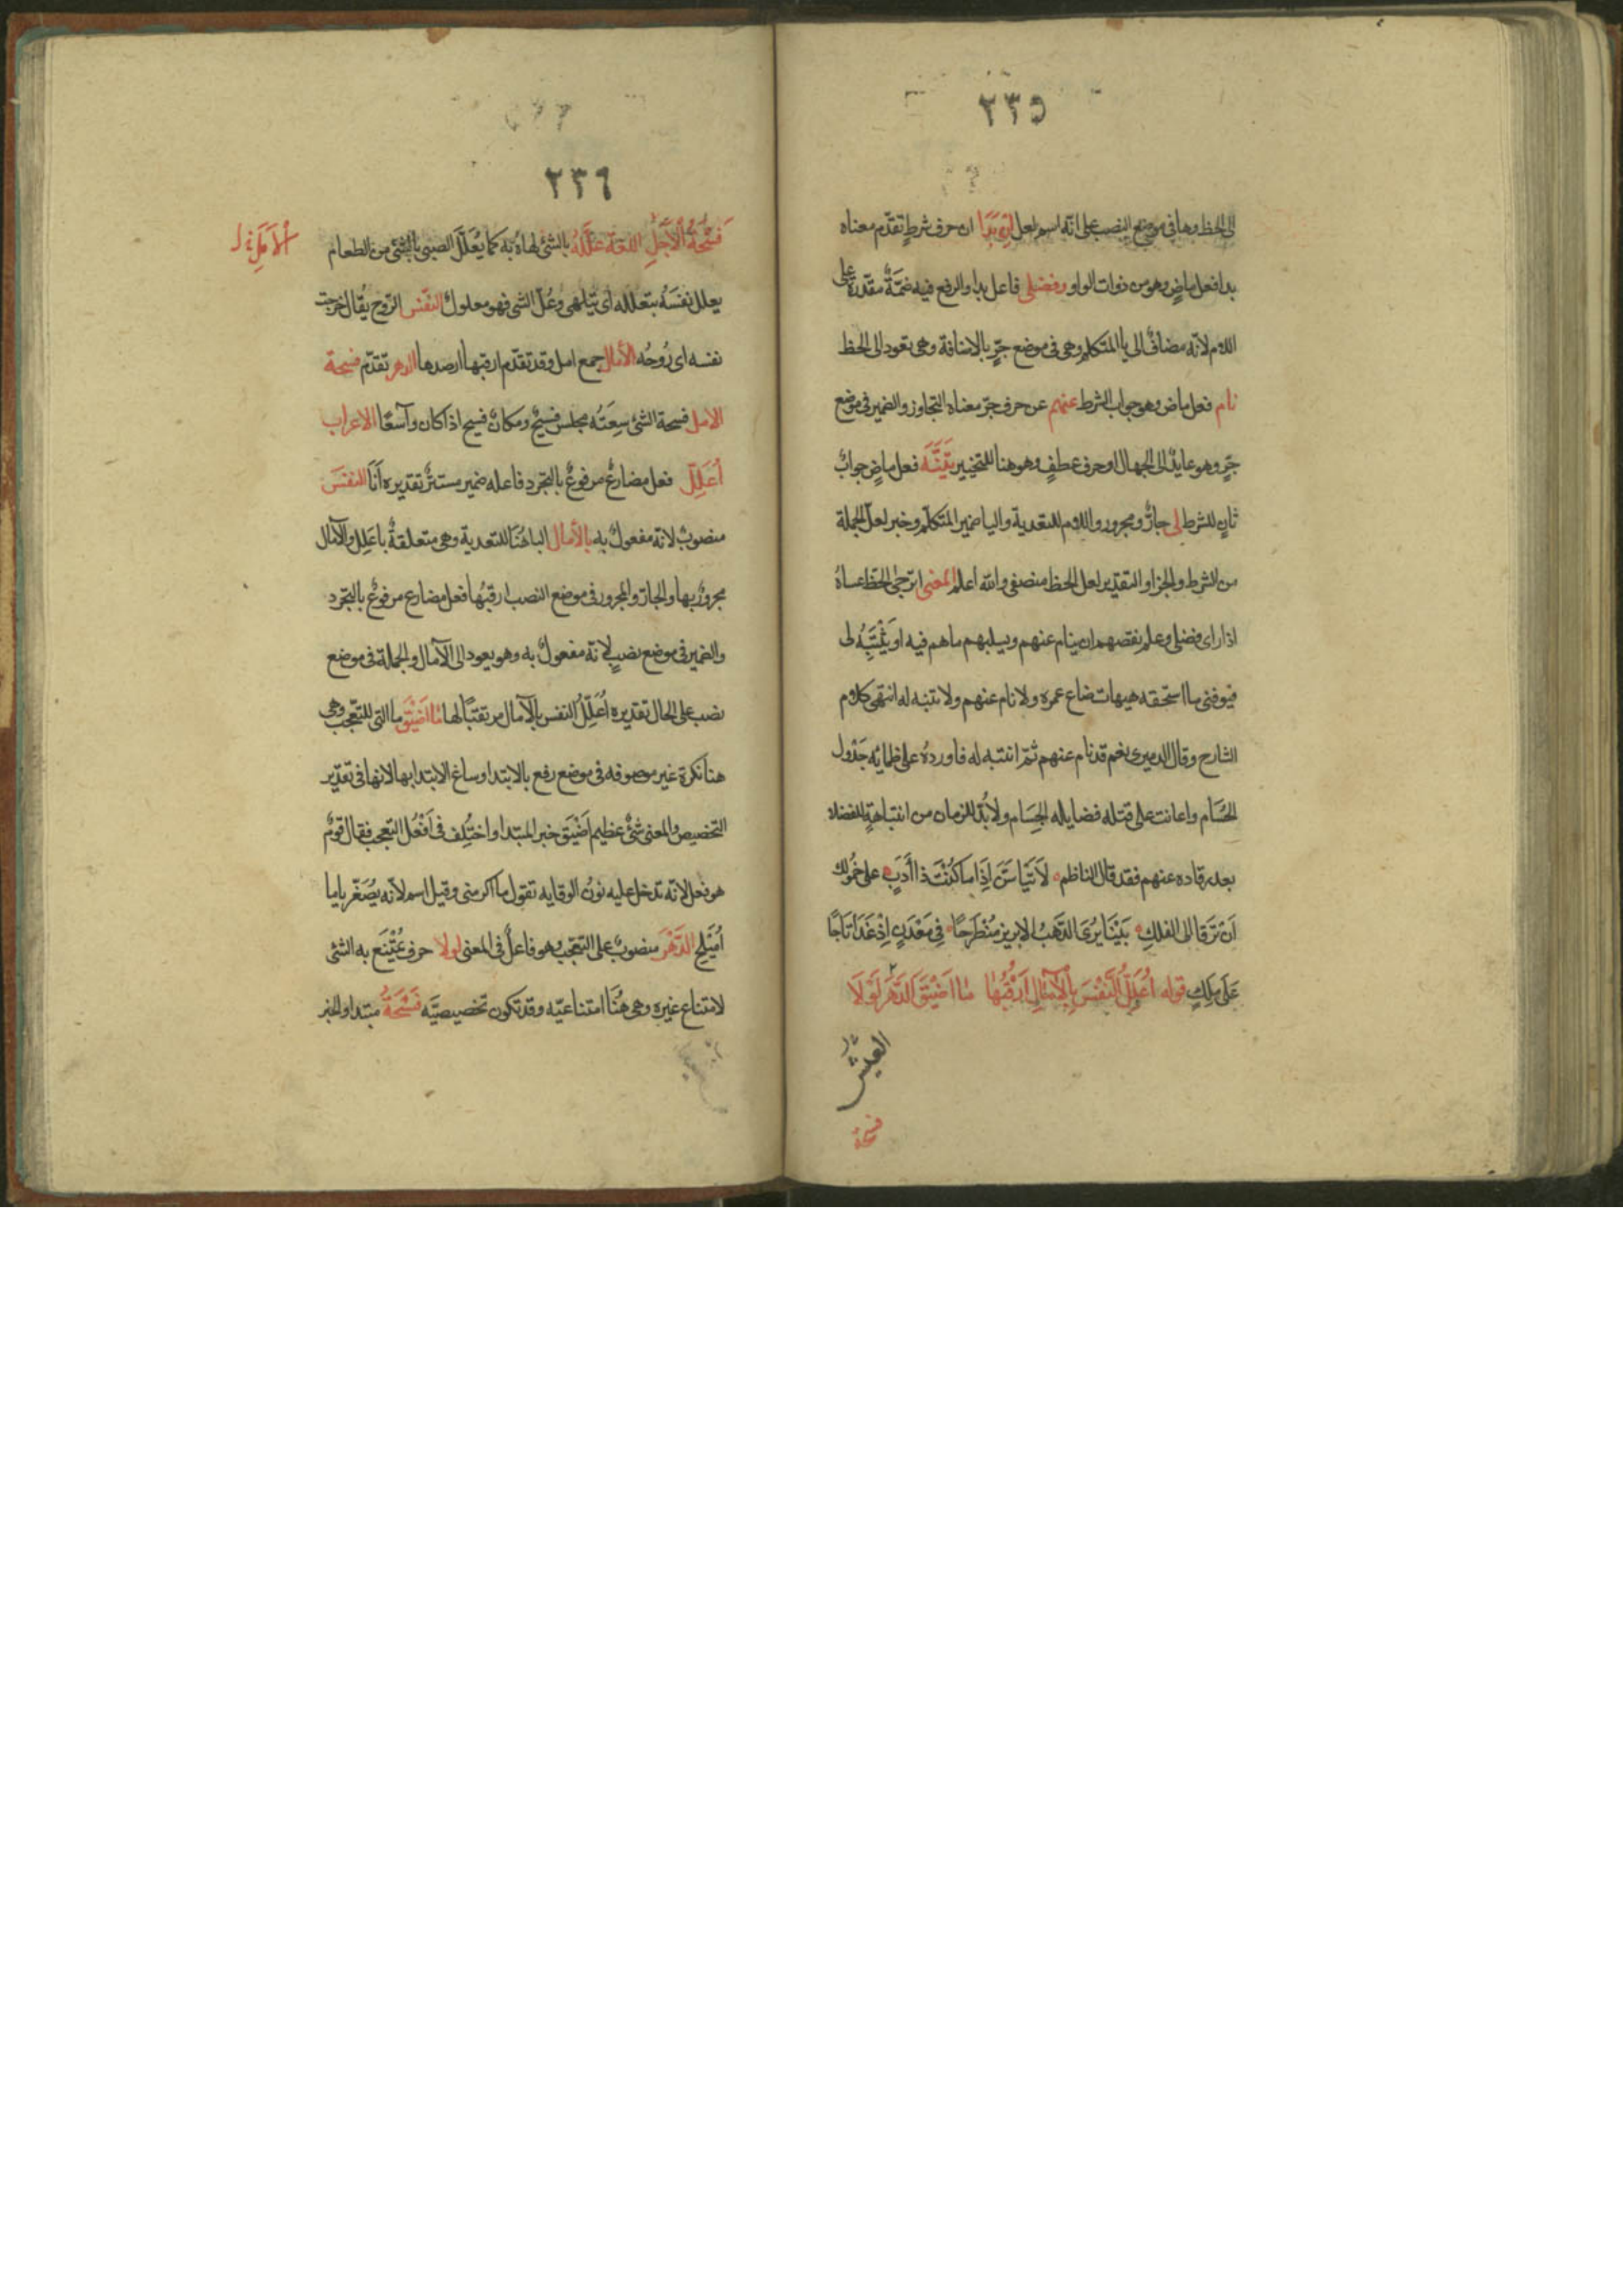 ٢٣٥
الى الحظ وها في موضع النصب على انه اسم لعل ان بَدَا ان حرف شرطٍ تقدّم معناه
بدا فعل ماضٍ وهو من ذوات الواو وفضلى فاعل بدا والرفع فيه ضمّةٌ مقدّرة على
اللام لانّه مضافٌ الى يا المتكلم وهى فى موضع جرٍّ بالاضافة وهى تعود الى الحظ
نام فعل ماض وهو جواب الشرط عنهم عن حرف جرّ معناه التجاوز والضمير فى موضع
جرٍّ وهو عايدٌ الى الجهال او حرف عطفٍ وهو هنا للتخيير تَنَبَّهَ فعل ماضٍ جوابٌ
ثانٍ للشرط لى جارٌّ ومجرور واللام للتعدية واليا ضمير المتكلّم وخبر لعلّ الجملة
من الشرط والجزا والتقدير لعل الحظ منصفى والله اعلم المعنى اترجى الحظ عساهُ
اذا راى فضلى وعلم نقصهم ان ينام عنهم ويسلبهم ما هم فيه او يَنْتَبِهُ لى
فيوفنى ما استحقه هيهات ضاع عمره ولا نام عنهم ولا تنبه له انتهى كلام
الشارح وقال الدميرى نعم قد نام عنهم ثمّ انتبه له فاوردهُ على ظمائه جَدْول
الحُسَام واعانت على قتله فضايله الجِسَام ولابُدّ للزمان من انتباهةٍ للفضلا
بعد رقاده عنهم فقد قال الناظم لَا تَيْاسَنَّ اِذَا مَا كُنْتَ ذا اَدَبٍ على خُمُولك
اَنْ تَرَقا الى الفلكِ بَيْنَا يُرَى الذّهَبُ الابريز مُنْطَرِحًا فِى مَعْدَنٍ اِذْ غَدَا تَاجًا
عَلَى مَلِكِ قوله اُعَلِّلُ النَّفْسَ بِالْآمَالِ اَرْقُبُهَا مَا اَضْيَقَ الدَّهْرَ لَوْلَا
العيش
فسحة
٢٣٦
فُسْحَةُ الْاَجَلِ اللغة علَّلَهُ بالشئ لهاهُ به كما يُعَلَّلُ الصبى بالشئ من الطعام
الْاَمَلِ
يعلل نفسَهُ بتعلله اى يتلهى وعُلّ الشى فهو معلولٌ النفْس الرّوح يُقال خرجت
نفسه اى رُوحُه الآمال جمع امل وقد تقدّم ارقبها ارصدها الدهر تقدّم فسحة
الامل فسحة الشئ سِعَتُه مجلس فسيحٌ ومكانٌ فسيح اذا كان واسعًا الاعراب
اُعَلِّل فعل مضارعٌ مرفوعٌ بالتجرد فاعله ضمير مستترٌ تقديره اَنَا النفسَ
منصوبٌ لانه مفعولٌ به بالآمال البا هُنَا للتعدية وهى متعلقةٌ باعَلِل والآمال
مجرورٌ بها والجارّ والمجرور فى موضع النصب ارقبُها فعل مضارع مرفوعٌ بالتجرّد
والضمير فى موضع نصبٍ لانّه مفعولٌ به وهو يعود الى الآمال والجملة فى موضع
نصب على الحال تقديره اُعَلِّلُ النفس بالآمال مرتقبًا لها مَا اَضْيَقَ ما التى للتعّجب وهى
هنا نكرة غير موصوفه فى موضع رفع بالابتدا وساغ الابتدا بها لانها فى تقدير
التخصيص والمعنى شئٌ عظيم اَضْيَق خبر المبتدا واختُلِف فى اَفْعُل التعجب فقال قومٌ
هو فعل لانّه تدخل عليه نونُ الوقايه تقول ما اكرمنى وقيل اسم لانّه يُصَغّر ياما
اُمَيْلِح الدَّهْرَ منصوبٌ على التعجّب وهو فاعلٌ فى المعنى لولا حرف يمتَنع به الشئ
لامتناع غيره وهى هُنَا امتناعيّه وقد تكون تحضيضيَّه فُسْحَةُ مبتدا والخبر